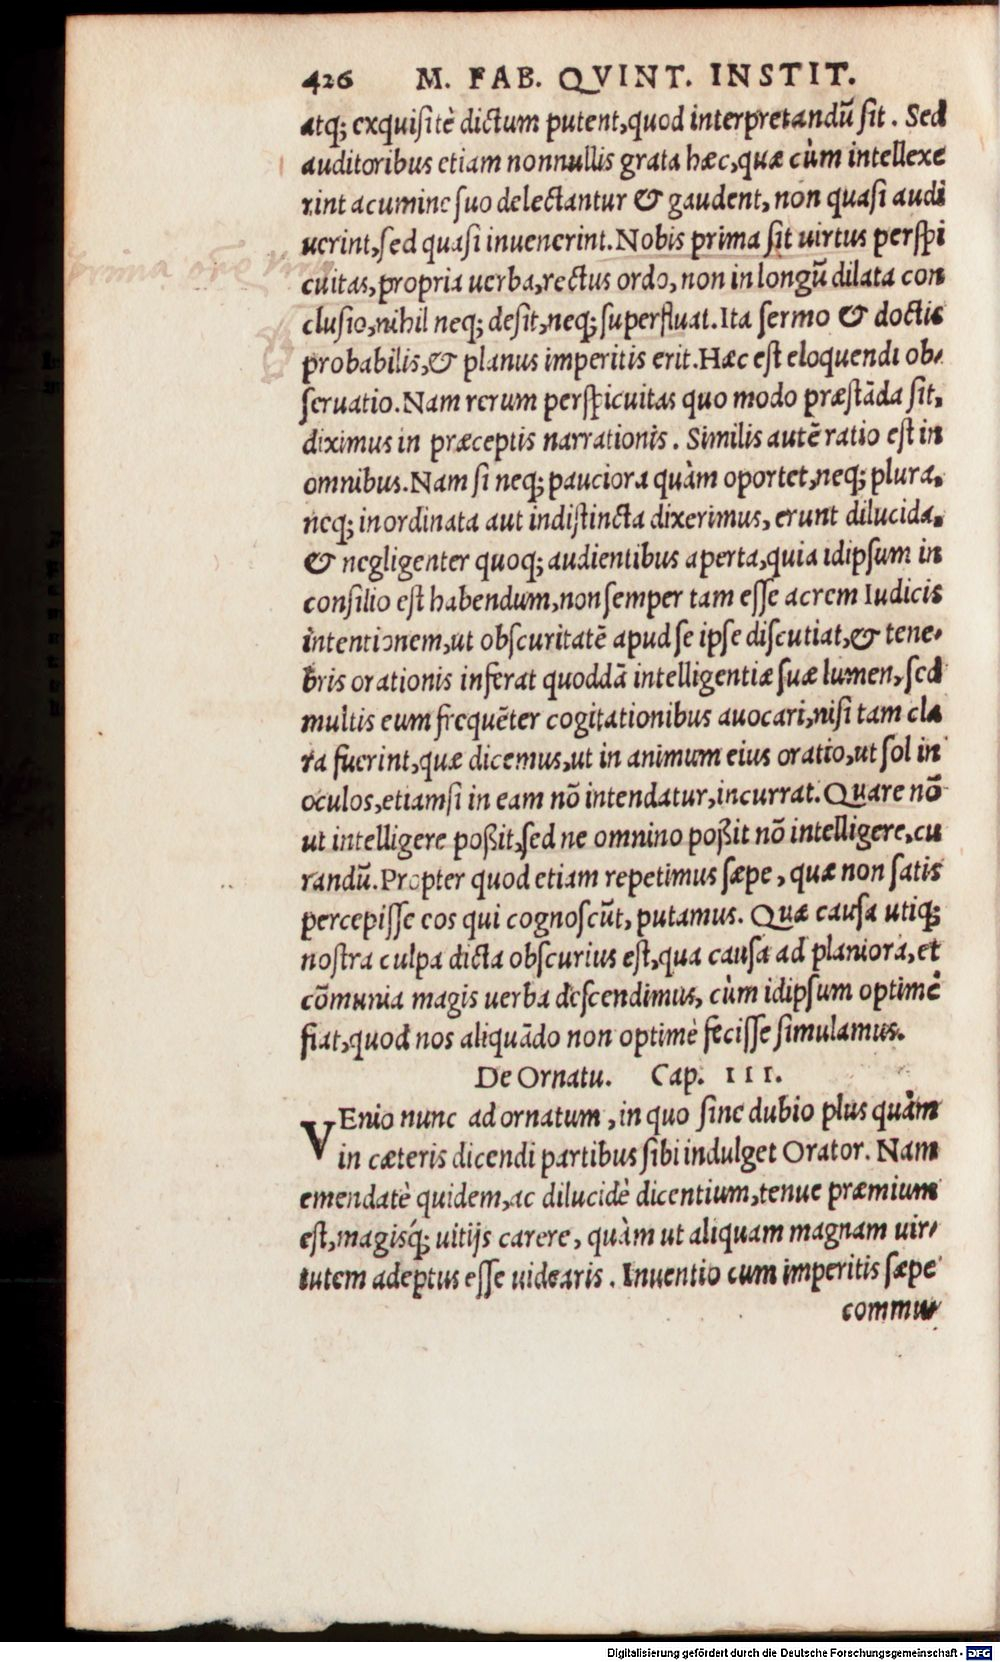 426 M. FAB. QVINT. INSTIT.
atq; exquisitè dictum putent, quod interpretandũ sit. Sed
auditoribus etiam nonnullis grata hæc, quæ cùm intellexe
rint acumine suo delectantur & gaudent, non quasi audi
uerint, sed quasi inuenerint. Nobis prima sit uirtus perspi
cuitas, propria uerba, rectus ordo, non in longũ dilata con
clusio, nihil neq; desit, neq; superfluat. Ita sermo & doctis
probabilis, & planus imperitis erit. Hæc est eloquendi ob-
seruatio. Nam rerum perspicuitas quo modo præstãda sit,
diximus in præceptis narrationis. Similis autẽ ratio est in
omnibus. Nam si neq; pauciora quàm oportet, neq; plura,
neq; inordinata aut indistincta dixerimus, erunt dilucida,
& negligenter quoq; audientibus aperta, quia idipsum in
consilio est habendum, non semper tam esse acrem Iudicis
intentionem, ut obscuritatẽ apud se ipse discutiat, & tene-
bris orationis inferat quoddã intelligentiæ suæ lumen, sed
multis eum frequẽter cogitationibus auocari, nisi tam cla
ra fuerint, quæ dicemus, ut in animum eius oratio, ut sol in
oculos, etiamsi in eam nõ intendatur, incurrat. Quare nõ
ut intelligere poßit, sed ne omnino poßit nõ intelligere, cu
randũ. Propter quod etiam repetimus sæpe, quæ non satis
percepisse eos qui cognoscũt, putamus. Quæ causa utiq;
nostra culpa dicta obscurius est, qua causa ad planiora, et
cõmunia magis uerba descendimus, cùm idipsum optimè
fiat, quod nos aliquãdo non optimè fecisse simulamus.
De Ornatu. Cap. III.
VEnio nunc ad ornatum, in quo sine dubio plus quàm
in cæteris dicendi partibus sibi indulget Orator. Nam
emendatè quidem, ac dilucidè dicentium, tenue præmium
est, magisq́; uitijs carere, quàm ut aliquam magnam uir-
tutem adeptus esse uidearis. Inuentio cum imperitis sæpe
commu-
prima
Digitalisierung gefördert durch die Deutsche Forschungsgemeinschaft - DFG